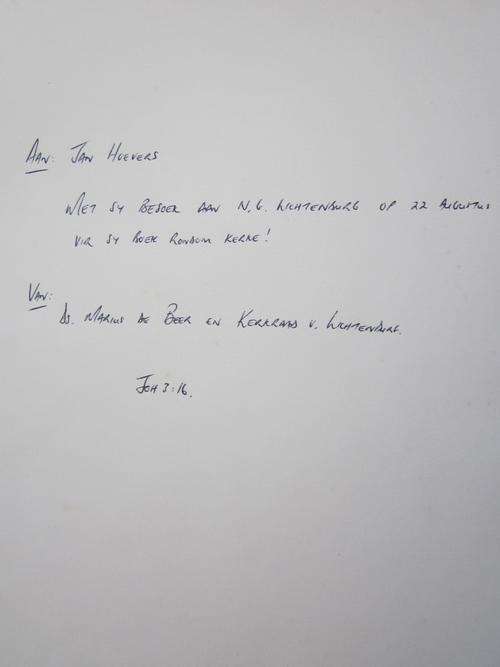 Aan: Jan Hoevers
Met sy besoek aan N.G. Lichtenburg op 22 Augustus
vir sy boek rondom kerke!
Van:
Ds. Marius de Beer en Kerkraad v. Lichtenburg.
Joh 3:16.